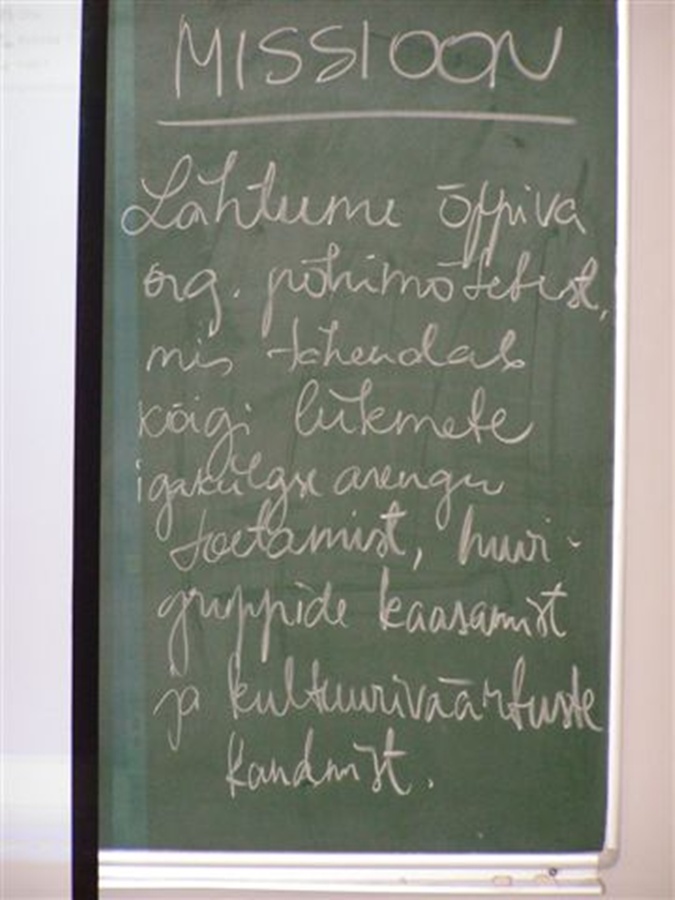 MISSIOON
Lähtume õppiva
org. põhimõtetest,
mis tähendab
kõigi liikmete
igakülgse arengu
toetamist, huvi-
gruppide kaasamist
ja kultuuriväärtuste
kandmist.